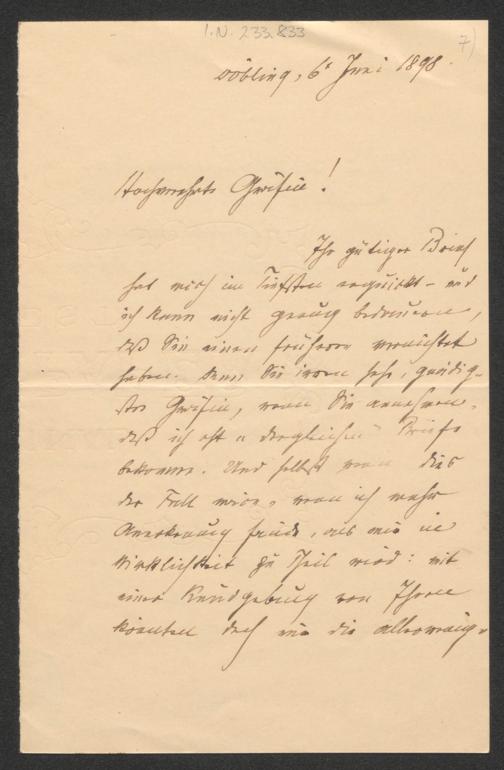 I.N. 233.833
7)
Döbling, 6t Juni 1898.
Hochverehrte Gräfin!
Ihr gütiger Brief
hat mich im Tiefsten erquickt – und
ich kann nicht genug bedauern,
daß Sie einen früheren vernichtet
haben. Denn Sie irren sehr, gnädig-
ste Gräfin, wenn Sie annehmen,
daß ich oft „dergleichen“ Briefe
bekomme. Und selbst wenn dies
der Fall wäre, wenn ich mehr
Anerkennung fände, als mir in
Wirklichkeit zu Theil wird: mit
einer Kundgebung von Ihnen
könnten doch nur die allerwenig-